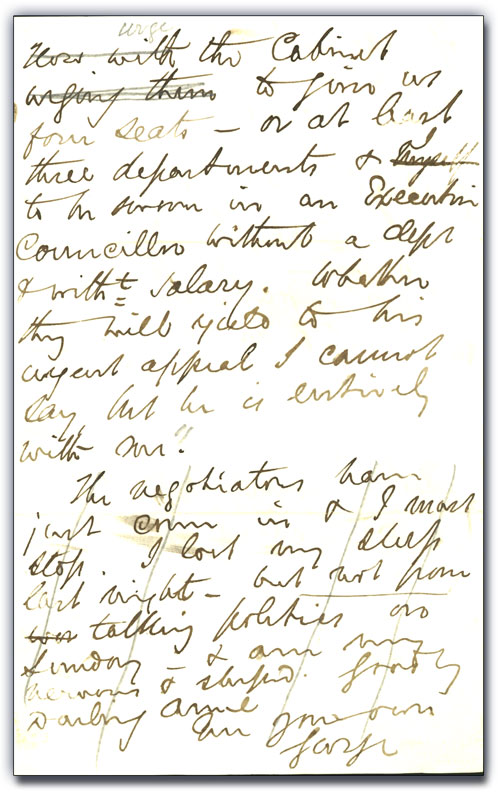 urge
now with the Cabinet
urging them to give us
four seats – or at least
three departments & I myself
to be sworn in an Executive
Councillor without a dept
& witht salary. Whether
they will yield to his
urgent appeal I cannot
say, but he is entirely
with me".
The negotiators have
just come in & I must
stop. I lost my sleep
last night – but not from
talking politics on
Sunday & am very
nervous & stupid. Good by
Darling Anne
Am your own
George